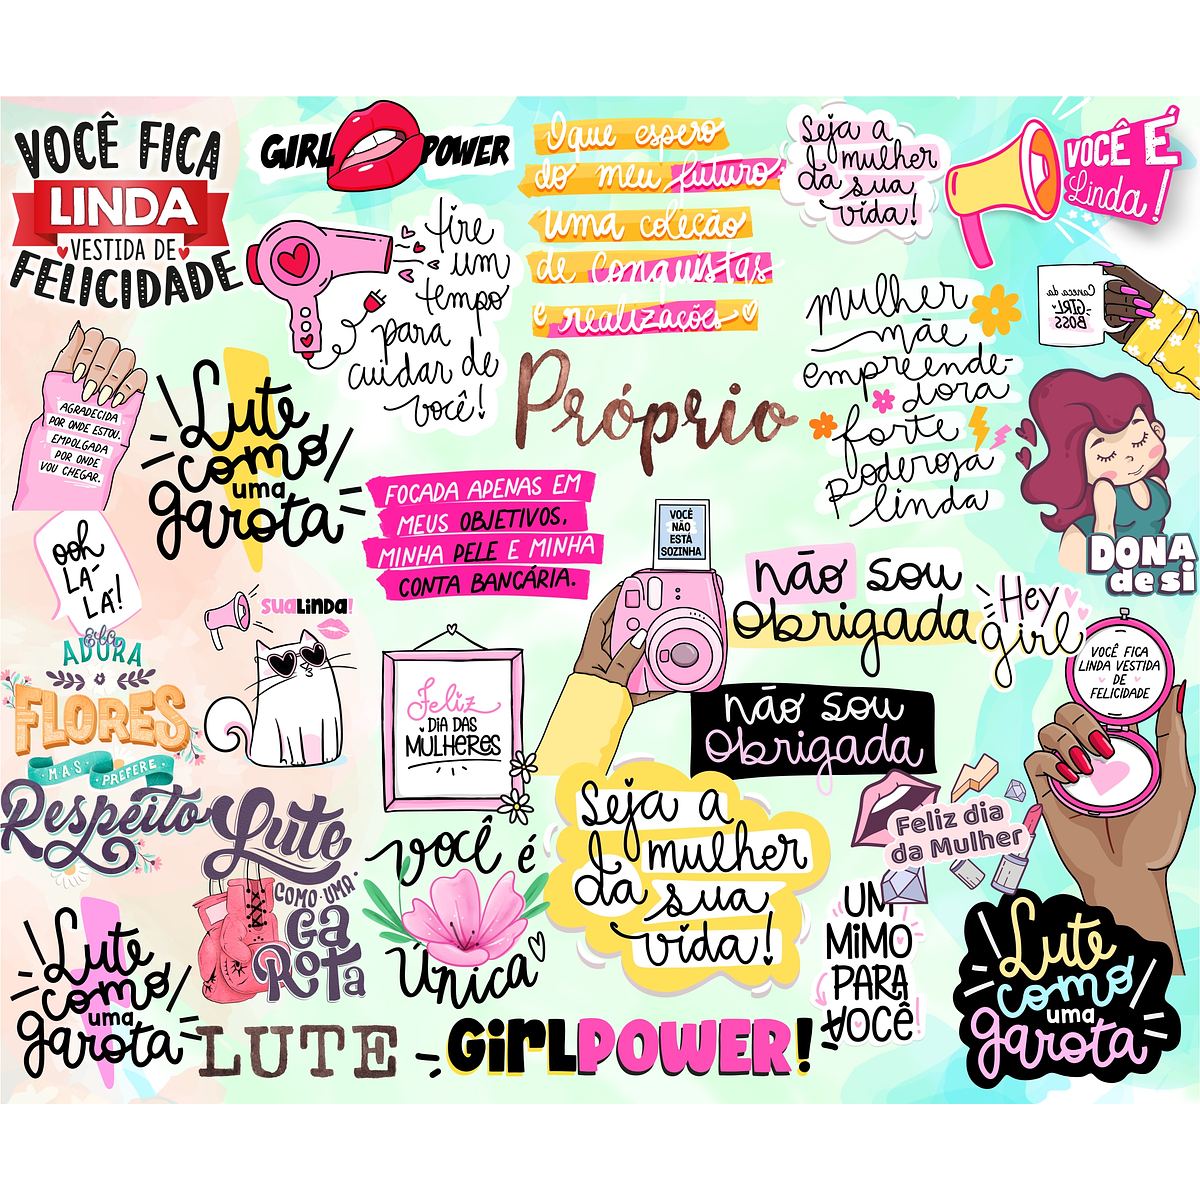 VOCÊ FICA
LINDA
VESTIDA DE
FELICIDADE
GIRL POWER
O que espero
do meu futuro
uma coleção
de conquistas
e realizações
Seja a
mulher
da sua
vida!
VOCÊ É
Linda!
tire
um
tempo
para
cuidar de
você!
mulher
mãe
empreende-
dora
forte
poderosa
linda
Caneca da
GIRL
BOSS
AGRADECIDA
POR ONDE ESTOU.
EMPOLGADA
POR ONDE
VOU CHEGAR.
Lute
como
uma
garota
Próprio
FOCADA APENAS EM
MEUS OBJETIVOS,
MINHA PELE E MINHA
CONTA BANCÁRIA.
VOCÊ
NÃO
ESTÁ
SOZINHA
DONA
de si
ooh
LÁ-
LÁ!
SUA LINDA!
não sou
obrigada
Hey
girl
VOCÊ FICA
LINDA VESTIDA
DE
FELICIDADE
Ela
ADORA
FLORES
MAS PREFERE
Respeito
Feliz
DIA DAS
MULHERES
não sou
obrigada
Lute
COMO UMA
GaRota
você é
Única
Seja a
mulher
da sua
vida!
Feliz dia
da Mulher
UM
MIMO
PARA
VOCÊ!
Lute
como
uma
garota
Lute
como
uma
garota
LUTE
GIRLPOWER!